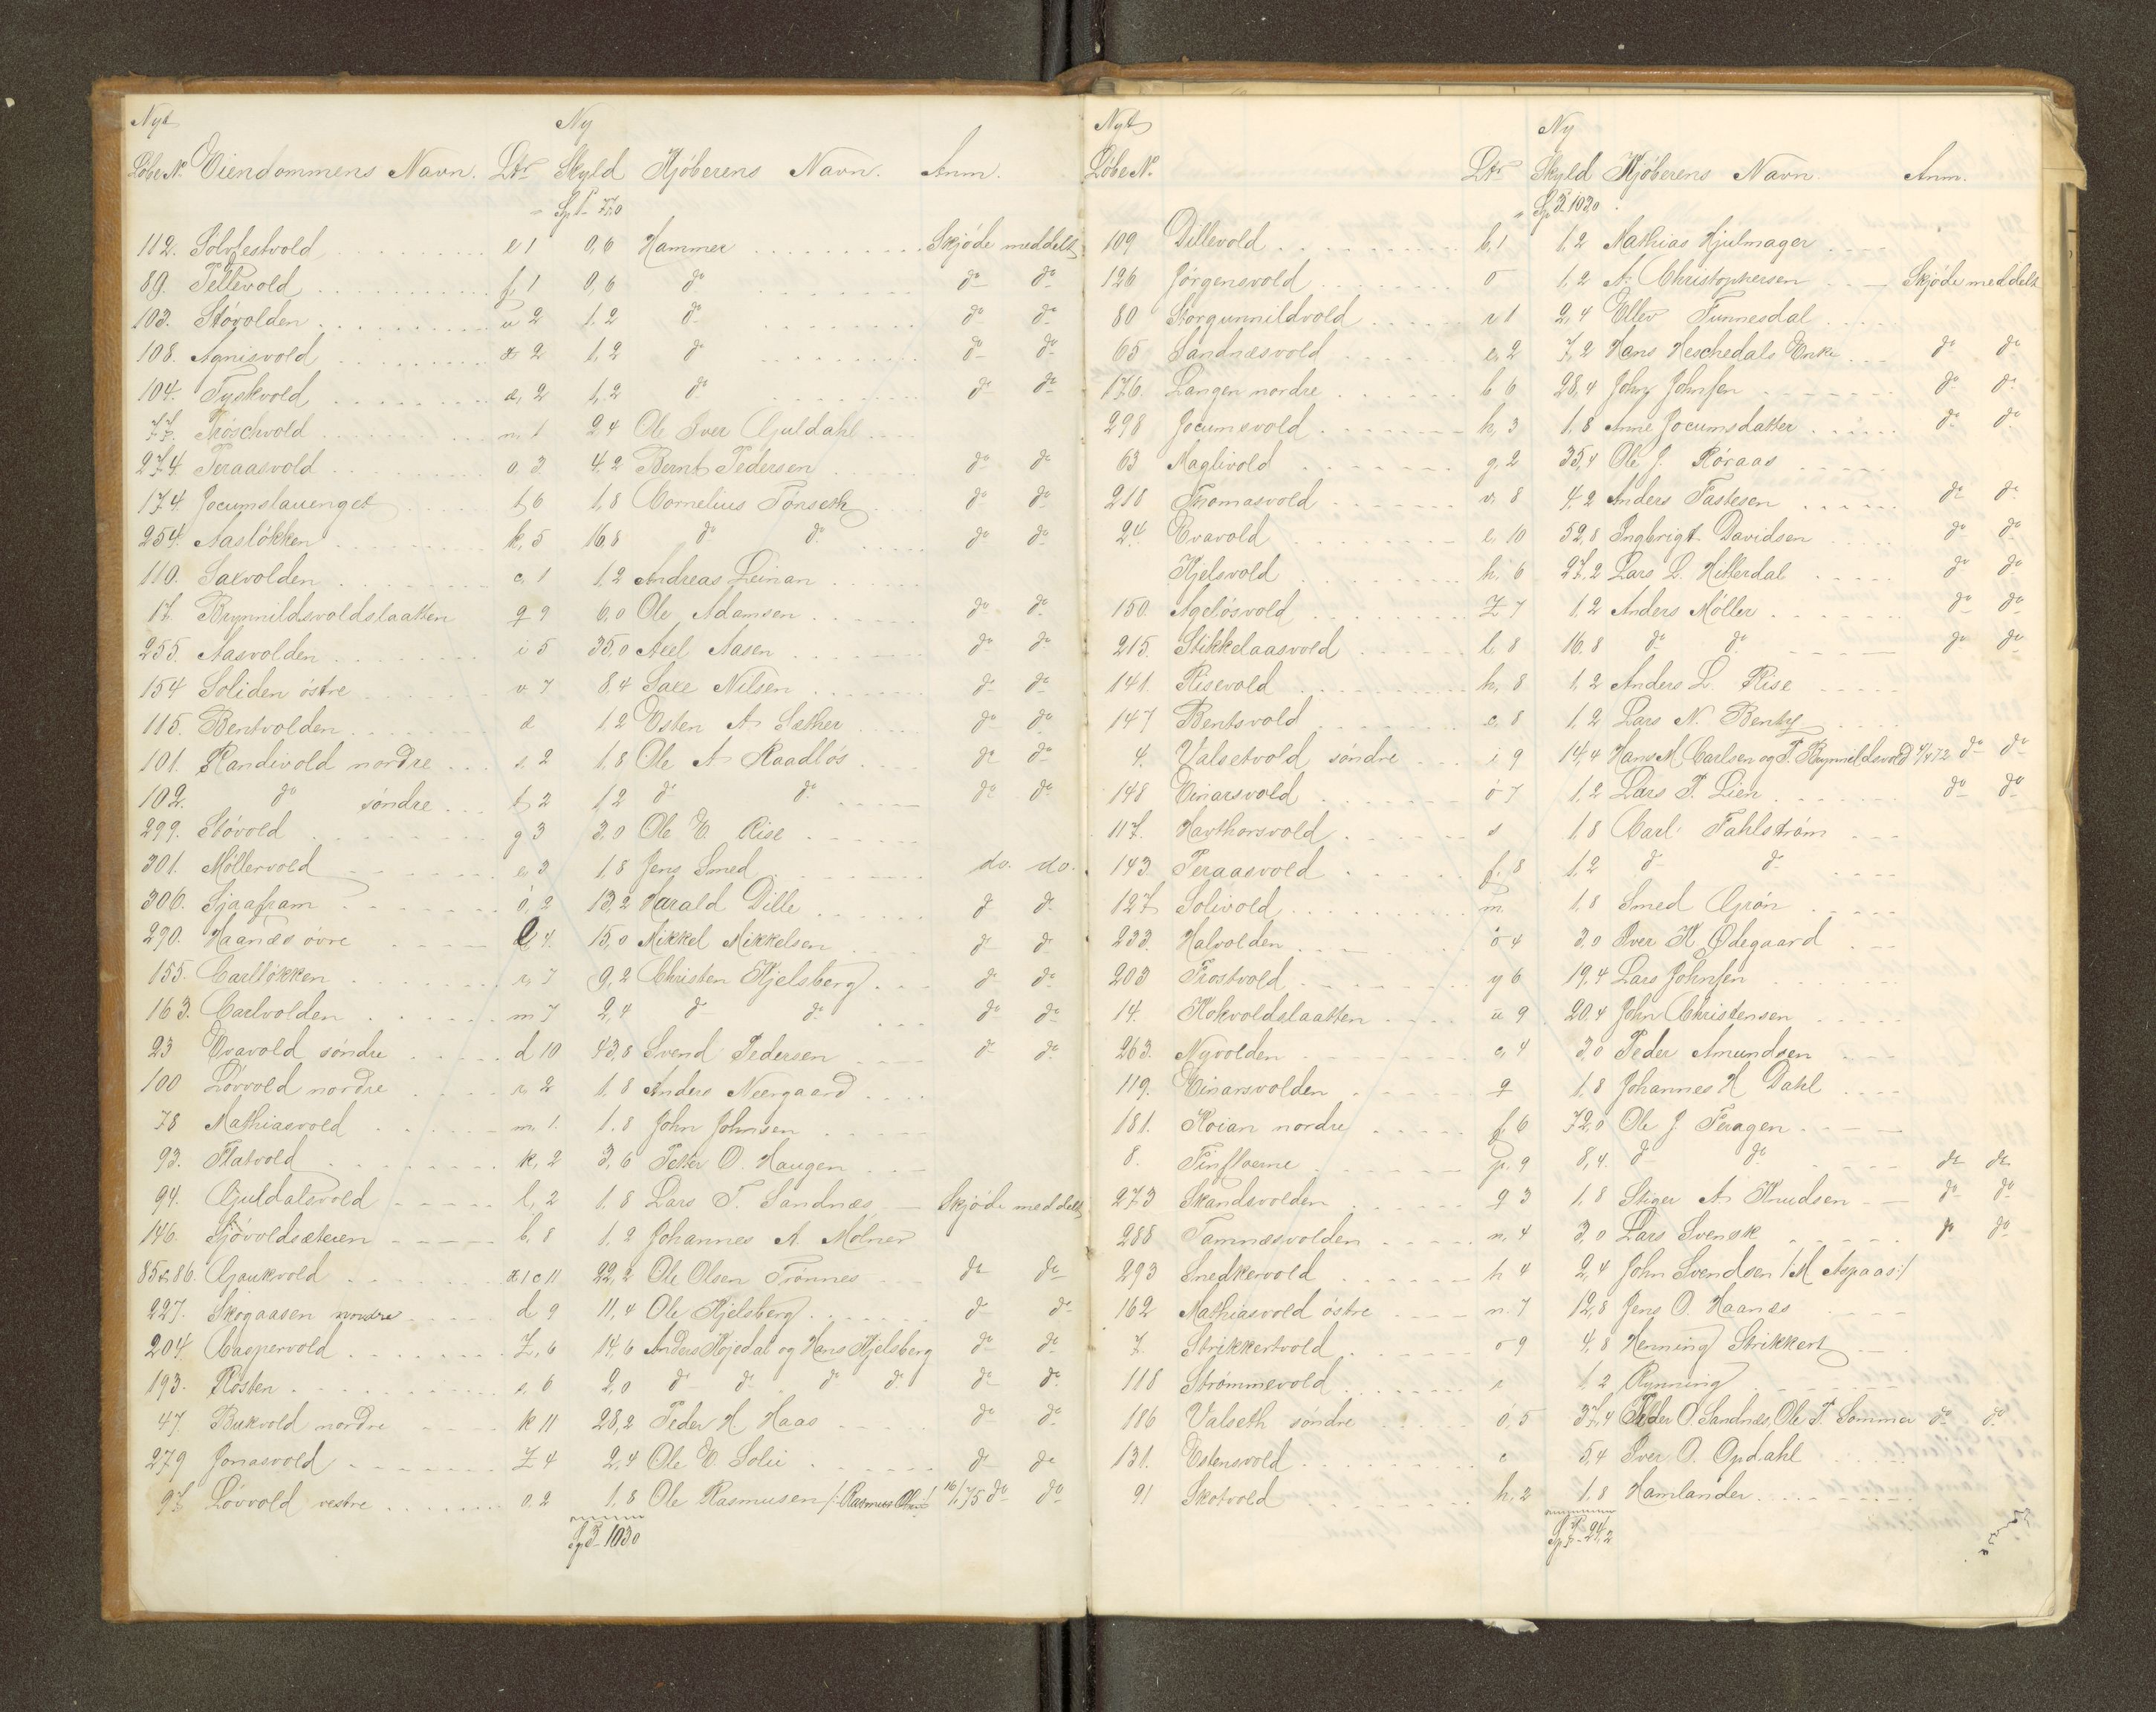 Nyt Ny
Løbe No Eiendommens Navn. Ltr Skyld Kjøberens Navn. Anm.
112. Solvfestvold e 1 0,6 Hammer Skjøde meddelt
89. Pellevold f 1 0,6 do do do
103. Støvolden u 2 1,2 do do do
108. Agnisvold 2 1,2 do do do
104. Tyskvold 2 1,2 do do do
77. Trøschvold n 1 2,4 Ole Iver Guldahl
274. Peraasvold o. 3. 4,2 Bernt Pedersen do do
174. Jocumslauenget 6 1,8 Cornelius Tønseth do do
254. Aasløkken k, 5 16,8 do do do do
110. Saxvolden c, 1 1,2 Andreas Leinan
17. Brynnildsvoldslaatten q 9 6,0 Ole Adamsen do do
255. Aasvolden i 5 35,0 Axel Aasen do do
154 Soliden østre v. 7 8,4 Saxe Nilsen do do
115. Bentvolden 1,2 Esten A. Sæther do do
101. Randivold nordre s. 2 1,8 Ole A. Raadløs do do
102. do søndre t, 2 1,2 do do do do
299. Støvold g 3 3,0 Ole E. Rise
301. Møllervold e, 3 1,8 Jens Smed do. do.
306. Sjaafram ö, 2 13,2 Harald Dille do do
290. Haanæs øvre 4. 15,0 Mikkel Mikkelsen do do
155. Carlløkken 7 9,2 Christen Hjelsberg do do
163. Carlvolden m 7 2,4 do do do do
23 Evavold søndre d 10 43,8 Svend Pedersen do do
100 Løvvold nordre r, 2 1,8 Anders Neergaard
78 Mathiasvold m, 1. 1.8 John Johnsen
93. Flatvold k, 2 3,6 Petter O. Haugen
94. Guldalsvold l, 2 1.8 Lars T. Sandnæs Skjøde meddelt
146. Sjøvoldsæteren b, 8 1,2 Johannes A. Molner
85 & 86. Gaukvold 1 c 11 22,2 Ole Olsen Trønnes do do
227. Skogaasen nordre d 9 11,4 Ole Hjelsberg do do
204. Caspervold Z, 6 14,6 Anders Højedal og Hans Hjelsberg do do
193. Røsten s, 6 2,0 do do do do do do
47 Bukvold nordre k 11 28,2 Peder H. Haas do do
279 Jonasvold Z 4 2,4 Ole E. Solli do do
97. Løvvold vestre o. 2 1,8 Ole Rasmusen /: Rasmus Olsen do do
1030
Nyt Ny
Løbe No. Ltr Skyld Kjøberens Navn Anm.
1030
109 Dillevold b, 1 1,2 Mathias Hjulmager
126 Jørgensvold o 1,2 A. Christophersen Skjøde meddelt
80 Storgunnildvold r 1 2,4 Ellev Tunnesdal
65 Sandnæsvold e, 2 7,2 Hans Heschedals Enke do do
176. Langen nordre b 6 28,4 John Johnsen do do
298 Jocumsvold h, 3 1,8 Anne Jocumsdatter do do
63 Maglivold g, 2 35,4 Ole J. Røraas
218 Thomasvold v, 8 4,2 Anders Fastesen do do
24. Evavold e, 10 52,8 Ingbrigt Davidsen do do
Kjelsvold h, 6 27,2 Lars L. Hitterdal do do
150. Ageløsvold Z 7 1,2 Anders Møller do do
215. Stikkelaasvold l, 8 16,8 do do do do
141. Risevold h, 8 1,2 Anders L. Rise
147 Bentsvold c. 8 1,2 Lars N. Bentz
4. Valsetvold søndre i 9 14,4 Hans M. Carlsen og P. Brynnildsvold do do
148 Einarsvold ö 7 1,2 Lars P. Lien do do
117. Havthorsvold s 1,8 Carl Fahlstrøm
143 Peraasvold f. 8 1,2 do do
127 Solivold m. 1,8 Smed Grøn
233. Halvolden ö 4 3,0 Iver H. Ødegaard
203 Trostvold y 6 19,4 Lars Johnsen
14. Kokvoldslaatten u 9 20,4 John Christensen
263. Nyvolden 4 3,0 Peder Amundsen
119. Einarsvolden q 1,8 Johannes H. Dahl
181. Koian nordre f, 6 72,0 Ole J. Feragen
8. Finfloerne p. 9 8,4. do do do do
273 Skandsvolden q 3 1,8 Stiger A. Knudsen do do
288 Tamnæsvolden n, 4 3,0 Lars Svensk do do
293 Snedkervold h 4 2,4 John Svendsen /: M. Aspaas :/
162 Mathiasvold østre n. 7 12,8 Jens O. Haanæs
7. Strikkertvold o 9 4,8 Henning Strikkert
118 Strømmevold r 1,2 Rynning
186 Valseth søndre ö, 5 37,4 Peder O. Sandnæs, Ole P. Sommer do do
131. Estensvold c 5,4 Iver O. Opdahl
91 Skotvold h, 2 1,8 Hamlander